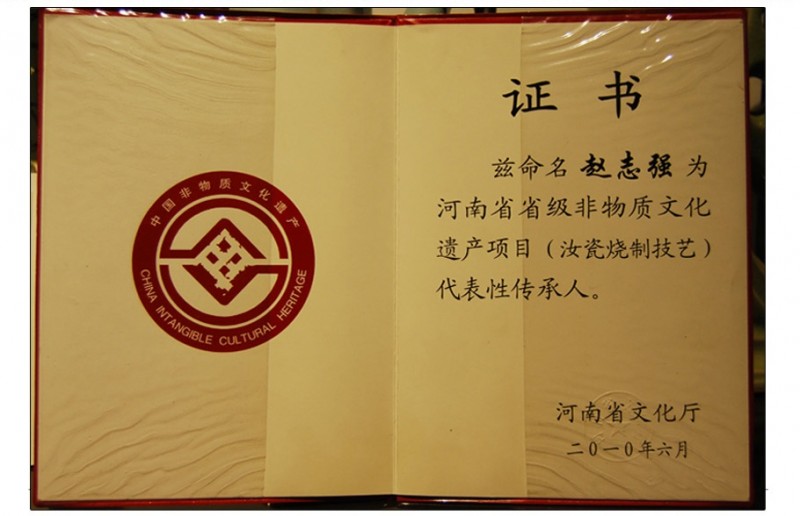 中国非物质文化遗产
CHINA INTANGIBLE CULTURAL HERITAGE
证书
兹命名赵志强为
河南省省级非物质文化
遗产项目（汝瓷烧制技艺）
代表性传承人。
河南省文化厅
二〇一〇年六月